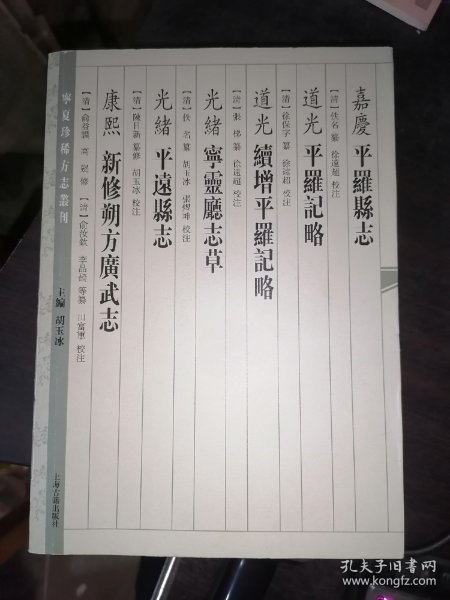 嘉慶 平羅縣志
〔清〕佚名 纂 徐遠超 校注
道光 平羅記略
〔清〕徐保字 纂 徐遠超 校注
道光 續增平羅記略
〔清〕張梯 纂 徐遠超 校注
光緒 寧靈廳志草
〔清〕佚名 纂 胡玉冰 張煜坤 校注
光緒 平遠縣志
〔清〕陳日新 纂修 胡玉冰 校注
康熙 新修朔方廣武志
〔清〕俞益謨 高嶷 修 〔清〕俞汝欽 李品㗊 等纂 田富軍 校注
寧夏珍稀方志叢刊
主編 胡玉冰
上海古籍出版社
孔夫子旧书网
www.kongfz.com